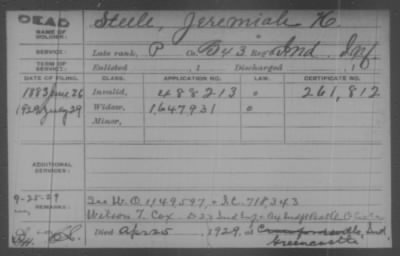 DEAD
NAME OF SOLDIER: Steele, Jeremiah H.
SERVICE: Late rank, P Co. B 43 Reg't Ind. Inf.
TERM OF SERVICE: Enlisted , 1 Discharged
DATE OF FILING. CLASS. APPLICATION NO. LAW. CERTIFICATE NO.
1883 June 26 Invalid, 488213 " 261,812
1929 July 29 Widow, 1647931 "
Minor,
ADDITIONAL SERVICES:
9-25-29
REMARKS: See W.O. 1149597, & I.C. 718343
Wilson T. Cox
Died Apr 25 , 1929, at Crawfordsville, Ind.
Greencastle